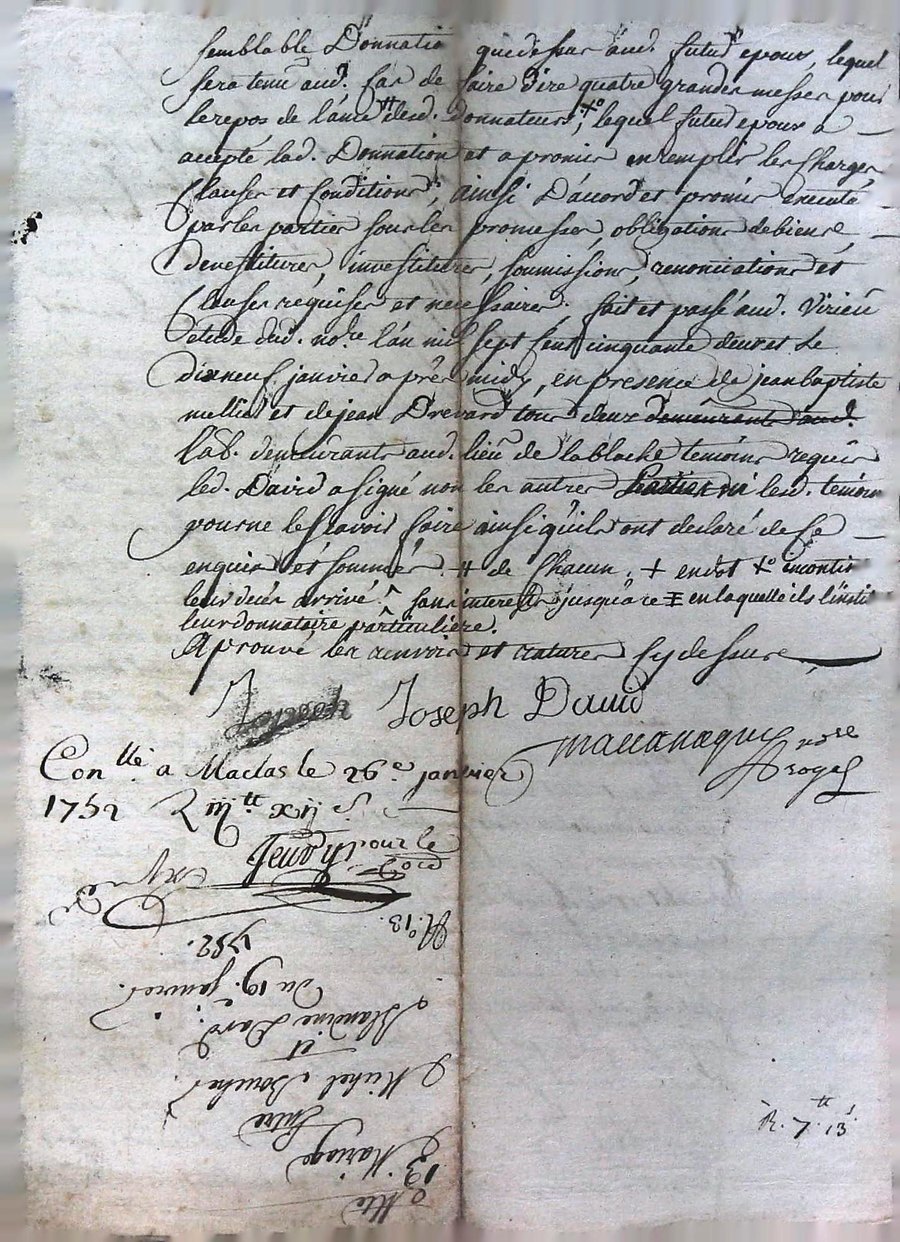 semblable Donnation que dessus aud. futur epoux, lequel
sera tenu aud. cas de faire dire quatre grandes messes pour
le repos de l'ame desd. Donnateurs, lequel futur epoux a
accepté lad. Donnation et a promis en remplir les Charges
Clauses et Conditions, ainsi D'acord et promis executé
par les parties sous les promesses, obligations de biens,
devestitures, investitures, soumissions, renonciations et
Clauses requises et necessaires. fait et passé aud. Virieu
etude dud. nore. l'an mil sept cent cinquante deux et le
dixneuf janvier après midy, en presence de jean baptiste
mellier et de jean Drevard tous deux
lab. demeurants aud. lieu de la blache temoins requis
led. David a signé non les autres lesd. temoins
pour ne le sçavoir faire ainsi qu'ils ont declaré de ce
enquis et sommés. # de Chacun. + en dot
leur decés arrivé ^ sans interest jusqu'a ce en laquelle ils
leur donnataire particuliere.
Aprouvé les renvois et ratures Cy dessus
Joseph Joseph David
nore
royal
Conlle a Maclas le 26e janvier
1752 R
pour le
No. 13.
1752.
du 19. janvier.
Blandine
et
Michel
Entre
Mariage
13
R. 7tt 13s